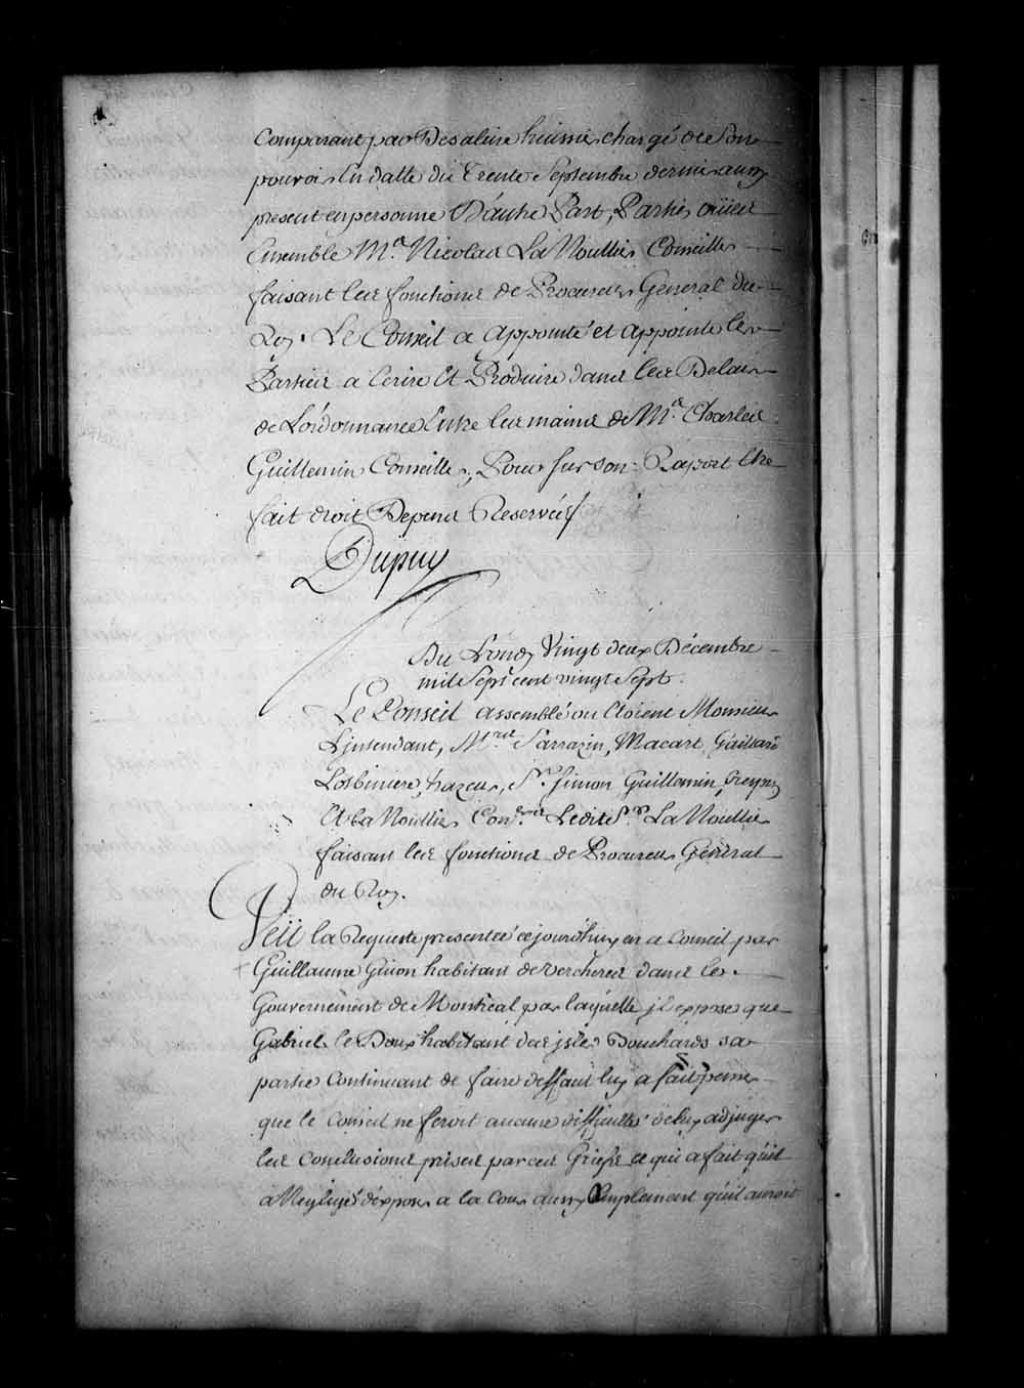 Comparant par Desaline huissier chargé de Son
pouvoir En datte du Trente Septembre dernier aussy
present en personne D'autre Part, Parties ouïes
Ensemble Me. Nicolas La Noullier Conseiller
faisant les fonctions de Procureur General du
Roy. Le Conseil a appointé et appointe les
Parties a Ecrire Et Produire dans les Delais
de L'ordonnance Entre les mains de Me. Charles
Guillemin Conseiller, Pour sur son Raport Etre
fait droit Depens Reservés/
Dupuy
Du Lundy Vingt deux Décembre
mil Sept cent vingt Sept.
Le Conseil assemblé ou Etoient Monsieur
L'jntendant, Mres. Sarrazin, Macart, Gaillard
Lotbiniere, hazeur, St. Simon Guillemin,
Et la Noullier Coners. Ledit Sr. La Noullier
faisant les fonctions de Procureur Général
du Roy.
Veü la Requeste presentée cejourdhuy en ce Conseil par
Guillaume habitant de Vercheres dans le
Gouvernement de Montreal par laquelle jl expose que
Gabriel le Doux habitant des jsles Bouchards sa
partie Continuant de faire deffaut luy a fait
que le Conseil ne feroit aucune difficulté de luy adjuger
les Conclusions prises par ses Griefs ce qui a fait qu'il
a Negligé d'exposer a la Cour aussy Amplement qu'il auroit